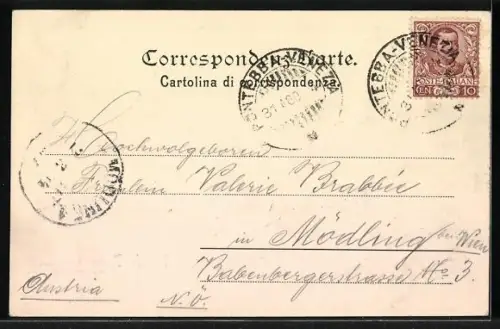 Correspondenzkarte.
Cartolina di corrispondenza.
PONTEBBA-VENEZIA
PONTEBBA-VENEZIA
POSTE ITALIANE
CEN 10
Hochwolgeboren
Fräulein Valerie Brabbée
in Mödling bei Wien
Babenbergerstrasse No 3.
Austria
N.Ö.
MÖDLING